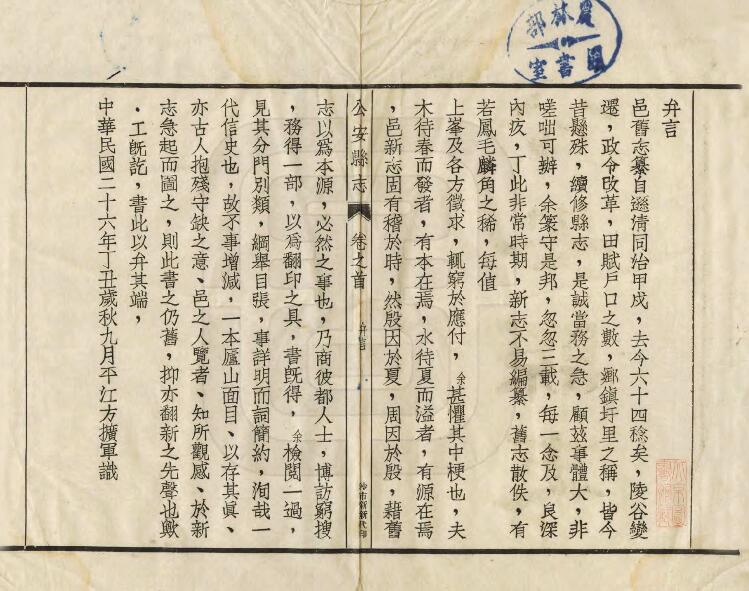 農林部
圖書室
弁言
邑舊志纂自遜清同治甲戌，去今六十四稔矣，陵谷變
遷，政令改革，田賦戶口之數，鄉鎮圩里之稱，皆今
昔懸殊，續修縣志，是誠當務之急，顧茲事體大，非
嗟咄可辦，余篆守是邦，忽忽三載，每一念及，良深
內疚，丁此非常時期，新志不易編纂，舊志散佚，有
若鳳毛麟角之稀，每值
上峯及各方徵求，輒窮於應付，余甚懼其中梗也，夫
木待春而發者，有本在焉，水待夏而溢者，有源在焉
，邑新志固有稽於時，然殷因於夏，周因於殷，藉舊
公安縣志 卷之首 弁言 沙市新新代印
志以爲本源，必然之事也，乃商彼都人士，博訪窮搜
，務得一部，以爲翻印之具，書旣得，余檢閱一過，
見其分門別類，綱舉目張，事詳明而詞簡約，洵哉一
代信史也，故不事增減，一本廬山面目、以存其眞、
亦古人抱殘守缺之意、邑之人覽者、知所觀感、於新
志急起而圖之，則此書之仍舊，抑亦翻新之先聲也歟
．工旣訖，書此以弁其端，
中華民國二十六年丁丑歲秋九月平江方擴軍識